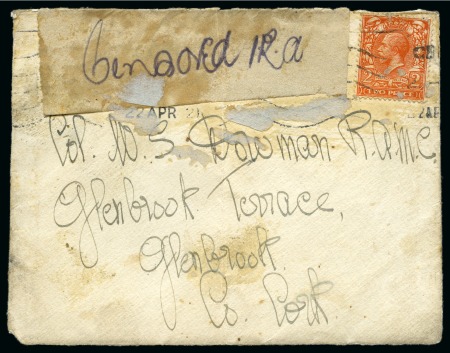 Censored I.R.A
22 APR 21
Col. W. S. Dowman R.A.M.C.
Glenbrook Terrace,
Glenbrook.
Co. Cork.